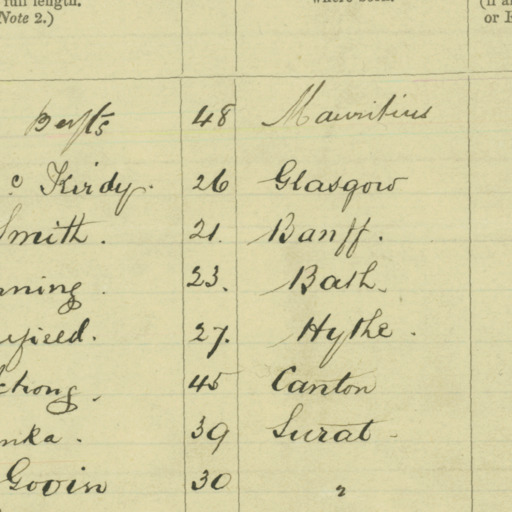 full length.
Note 2.)
where born.
(if a
or E
48 Mauritius
c Kirdy. 26 Glasgow
Smith. 21. Banff.
nning. 23. Bath.
yfield. 27. Hythe.
chong. 45 Canton
nka. 39 Surat
Govin 30 "